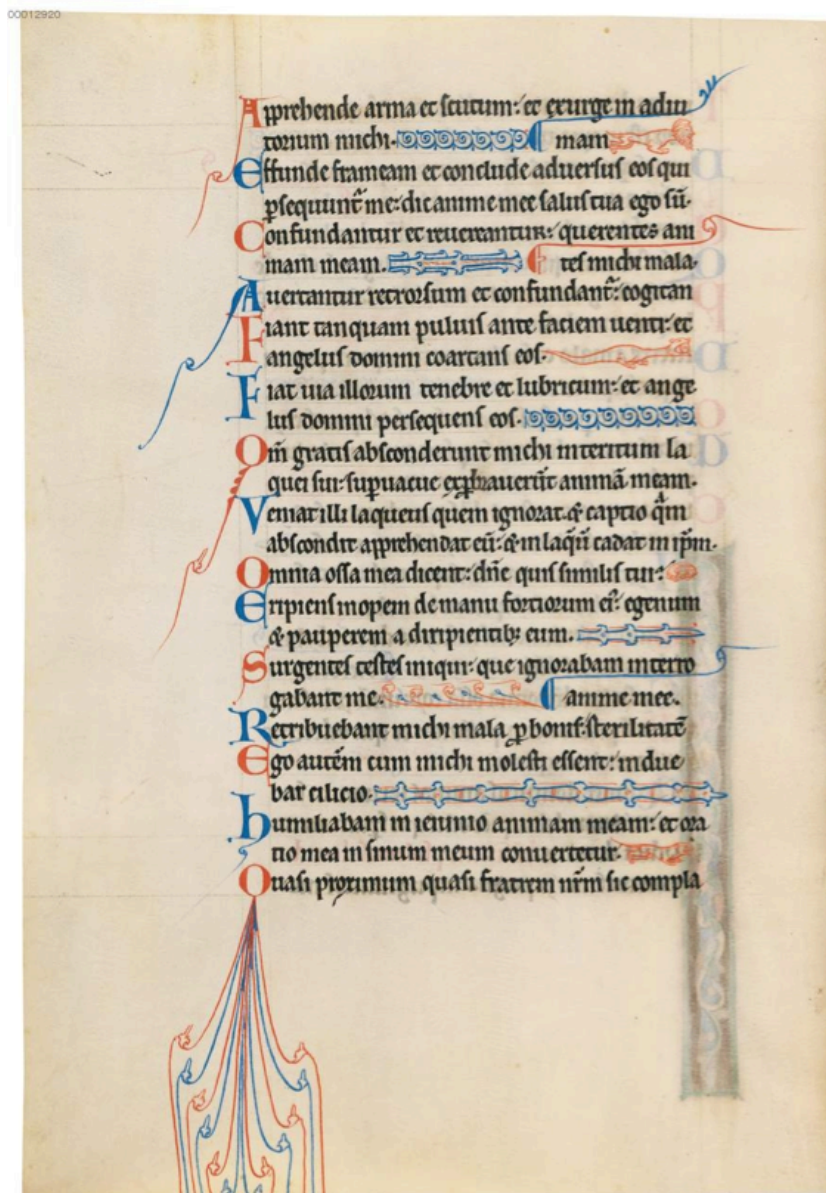 00012920
Apprehende arma et scutum: et exurge in adiu
torium michi. mam
Effunde frameam et conclude adversus eos qui
psequunt̄ me: dic anime mee salus tua ego sū.
Confundantur et revereantur: querentes ani
mam meam. tes michi mala.
Avertantur retrorsum et confundant̄: cogitan
Fiant tanquam pulvis ante faciem venti: et
angelus domini coartans eos.
Fiat via illorum tenebre et lubricum: et ange
lus domini persequens eos.
Qm̄ gratis absconderunt michi interitum la
quei sui: supvacue exprobraverūt animā meam.
Veniat illi laqueus quem ignorat. & captio q̄m
abscondit apprehendat eū: & in laq̄ū cadat in ip̄m.
Omnia ossa mea dicent: dn̄e quis similis tui:
Eripiens inopem de manu fortiorum ei: egenum
& pauperem a diripientib; eum.
Surgentes testes iniqui: que ignorabam interro
gabant me. anime mee.
Retribuebant michi mala p bonis: sterilitatē
Ego autem cum michi molesti essent: indue
bar cilicio.
humiliabam in ieiunio animam meam: et ora
tio mea in sinum meum convertetur.
Quasi proximum quasi fratrem nr̄m sic compla